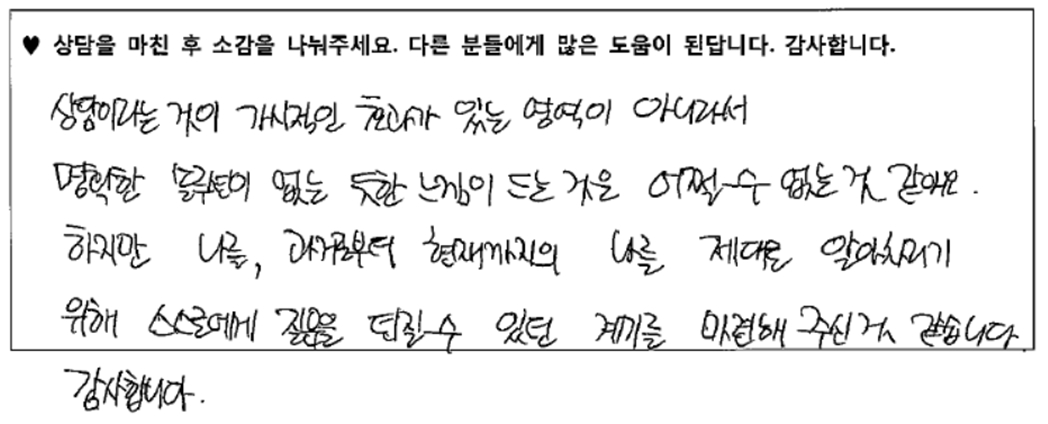 ♥ 상담을 마친 후 소감을 나눠주세요. 다른 분들에게 많은 도움이 된답니다. 감사합니다.
상담이라는 것이 가시적인 효과가 있는 영역이 아니라서
명확한 솔루션이 없는 듯한 느낌이 드는 것은 어쩔 수 없는 것 같아요.
하지만 나를, 과거로부터 현재까지의 나를 제대로 알아차리기
위해 스스로에게 질문을 던질 수 있던 계기를 마련해 주신 거 같습니다.
감사합니다.